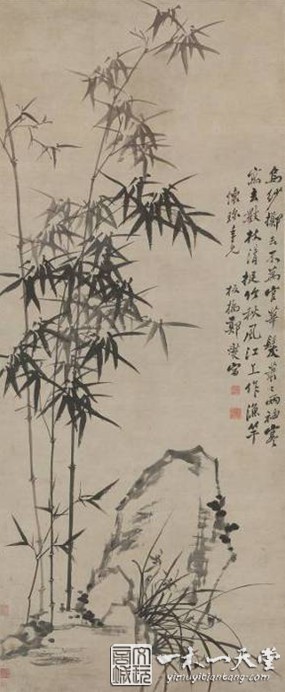 烏紗擲去不為官華髮蕭〻兩袖寒
寫去數枝清挺竹秋風江上作漁竿
年兄
板橋鄭燮寫
一木一天堂
yimuyitiantang.com